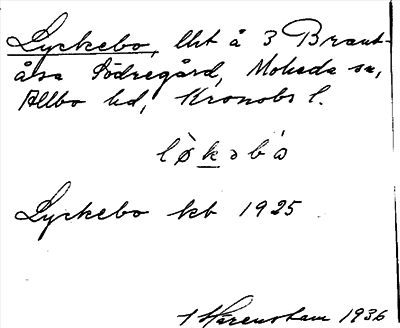 Lyckebo, lht å 3 Brant-
åsa Södregård, Moheda sn,
Allbo hd, Kronobs l.
lø̀kəbò
Lyckebo kb 1925
1936